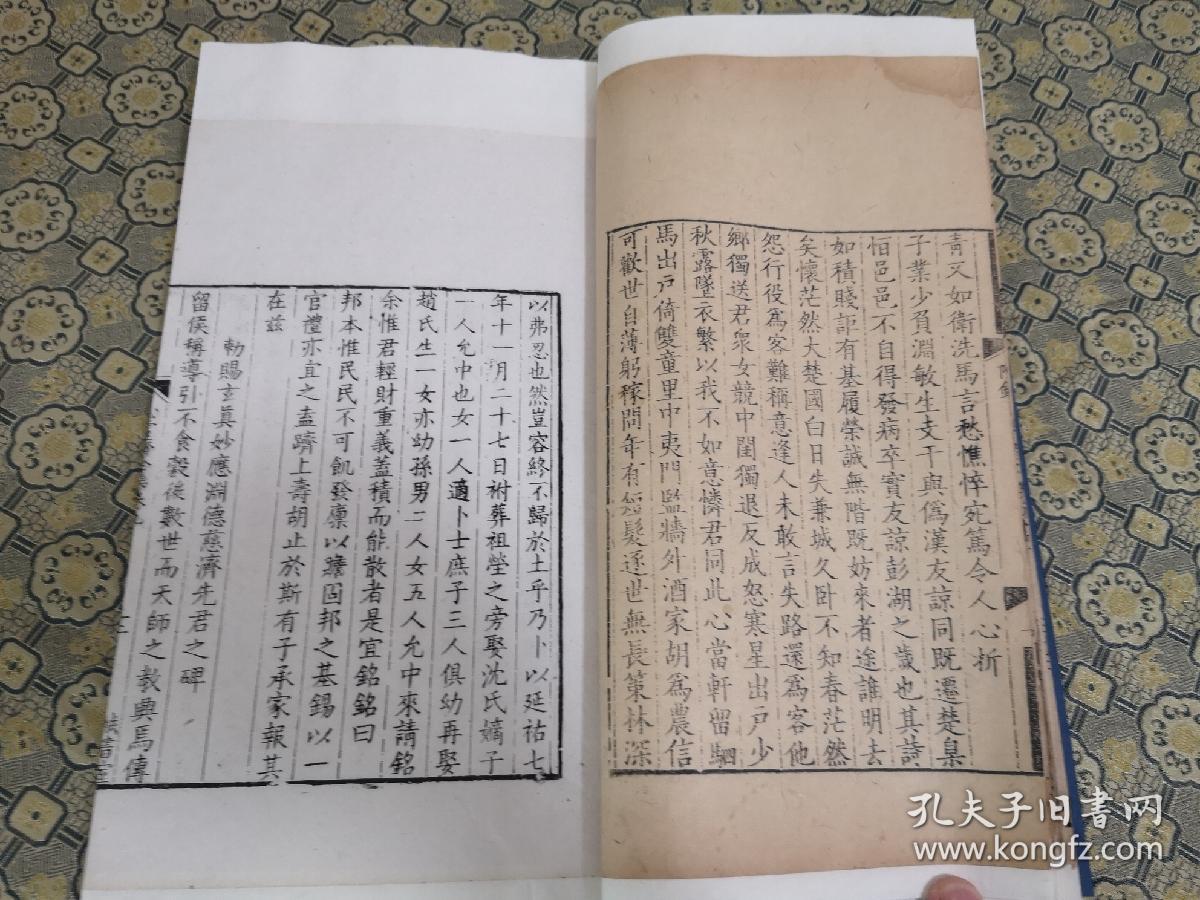 青又如衛洗馬言愁憔悴宛篤令人心折
子業少負淵敏生支干與爲漢友諒同既遷楚臬
怕邑邑不自得發病卒實友諒彭湖之歲也其詩
如積賤詎有基履榮誠無階既妨來者途誰明去
矣懷茫然大楚國白日失兼城久卧不知春茫然
怨行役爲客難稱意逢人未敢言失路還爲客他
鄉獨送君衆女競中閨獨退反成怒寒星出戶少
秋露墜衣繁以我不如意憐君同此心當軒留駟
馬出戶倚雙童里中夷門監牆外酒家胡爲農信
可歡世自薄躬稼問年有短髮逐世無長策林深
附錄
以弗忍也然豈容終不歸於土乎乃卜以延祐七
年十一月二十七日祔葬祖塋之旁娶沈氏嫡子
一人允中也女一人適卜士庶子三人俱幼再娶
趙氏生一女亦幼孫男二人女五人允中來請銘
余惟君輕財重義蓋積而能散者是宜銘銘曰
邦本惟民民不可飢發廪以贍固邦之基錫以一
官禮亦宜之盍躋上壽胡止於斯有子承家報其
在兹
勑賜玄真妙應淵德慈濟先君之碑
留侯稱導引不食穀後數世而天師之教興焉傳
孔夫子旧书网
www.kongfz.com